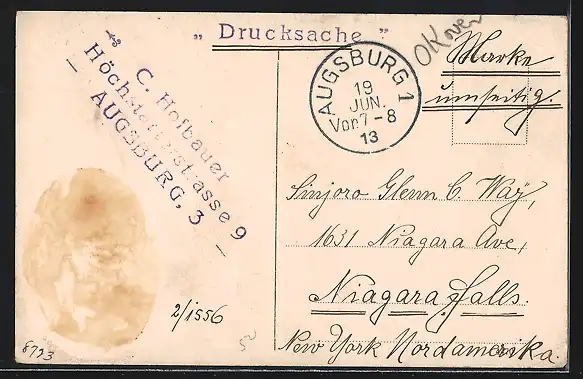 „Drucksache"
C. Hofbauer
Höchstetterstrasse 9
AUGSBURG, 3
AUGSBURG 1
19
JUN.
Vor 7-8
13
Marke
umseitig.
Sinjoro Glenn C. Way,
1631 Niagara Ave,
Niagara Falls.
New York Nordamerika.
2/1556
8793